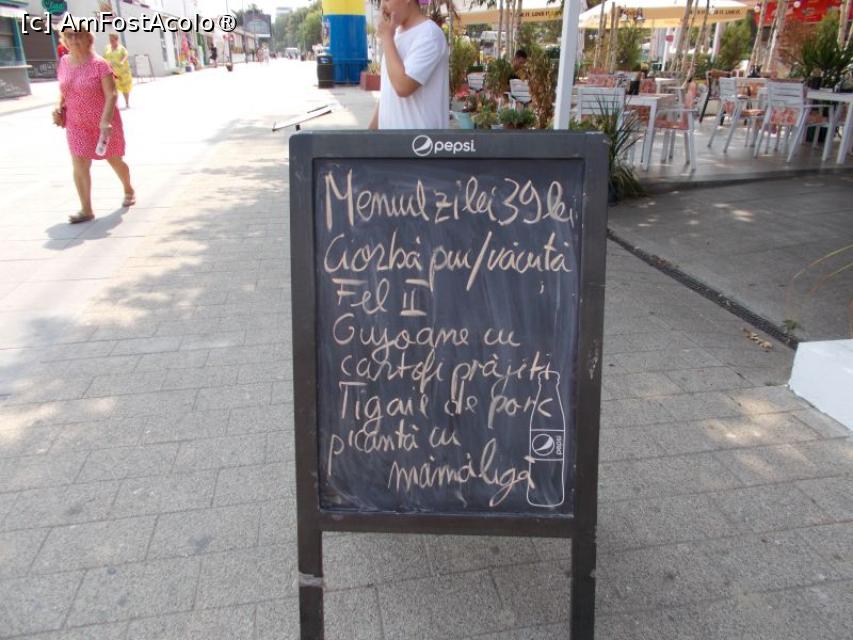 [c] AmFostAcolo®
pepsi
Meniul zilei 39 lei
Ciorbă pui/văcuță
Fel II
Gujoane cu
cartofi prăjiti
Tigaie de porc
picantă cu
mămăligă
pepsi